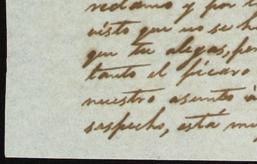 reclamo y por l
visto que no se h
que tu alegas, per
tanto el pícaro
nuestro asunto á
sospecho, está mu